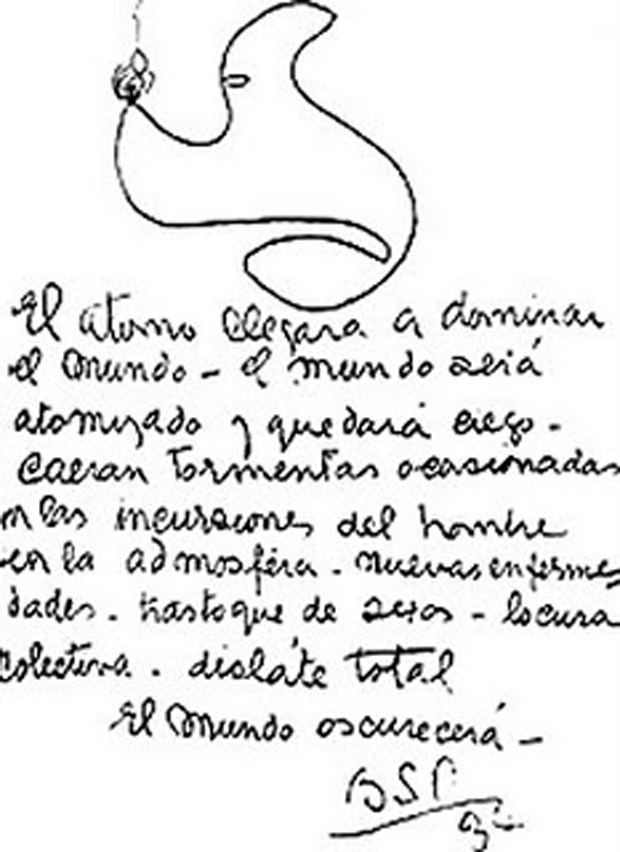 El atomo llegara a dominar
el mundo - el mundo será
atomizado y quedará ciego -
Caeran tormentas ocasionadas
en las incursiones del hombre
en la admosféra - nuevas enferme
dades - trastoque de sexos - locura
Colectiva . dislate total
El Mundo oscurecerá -
BSP